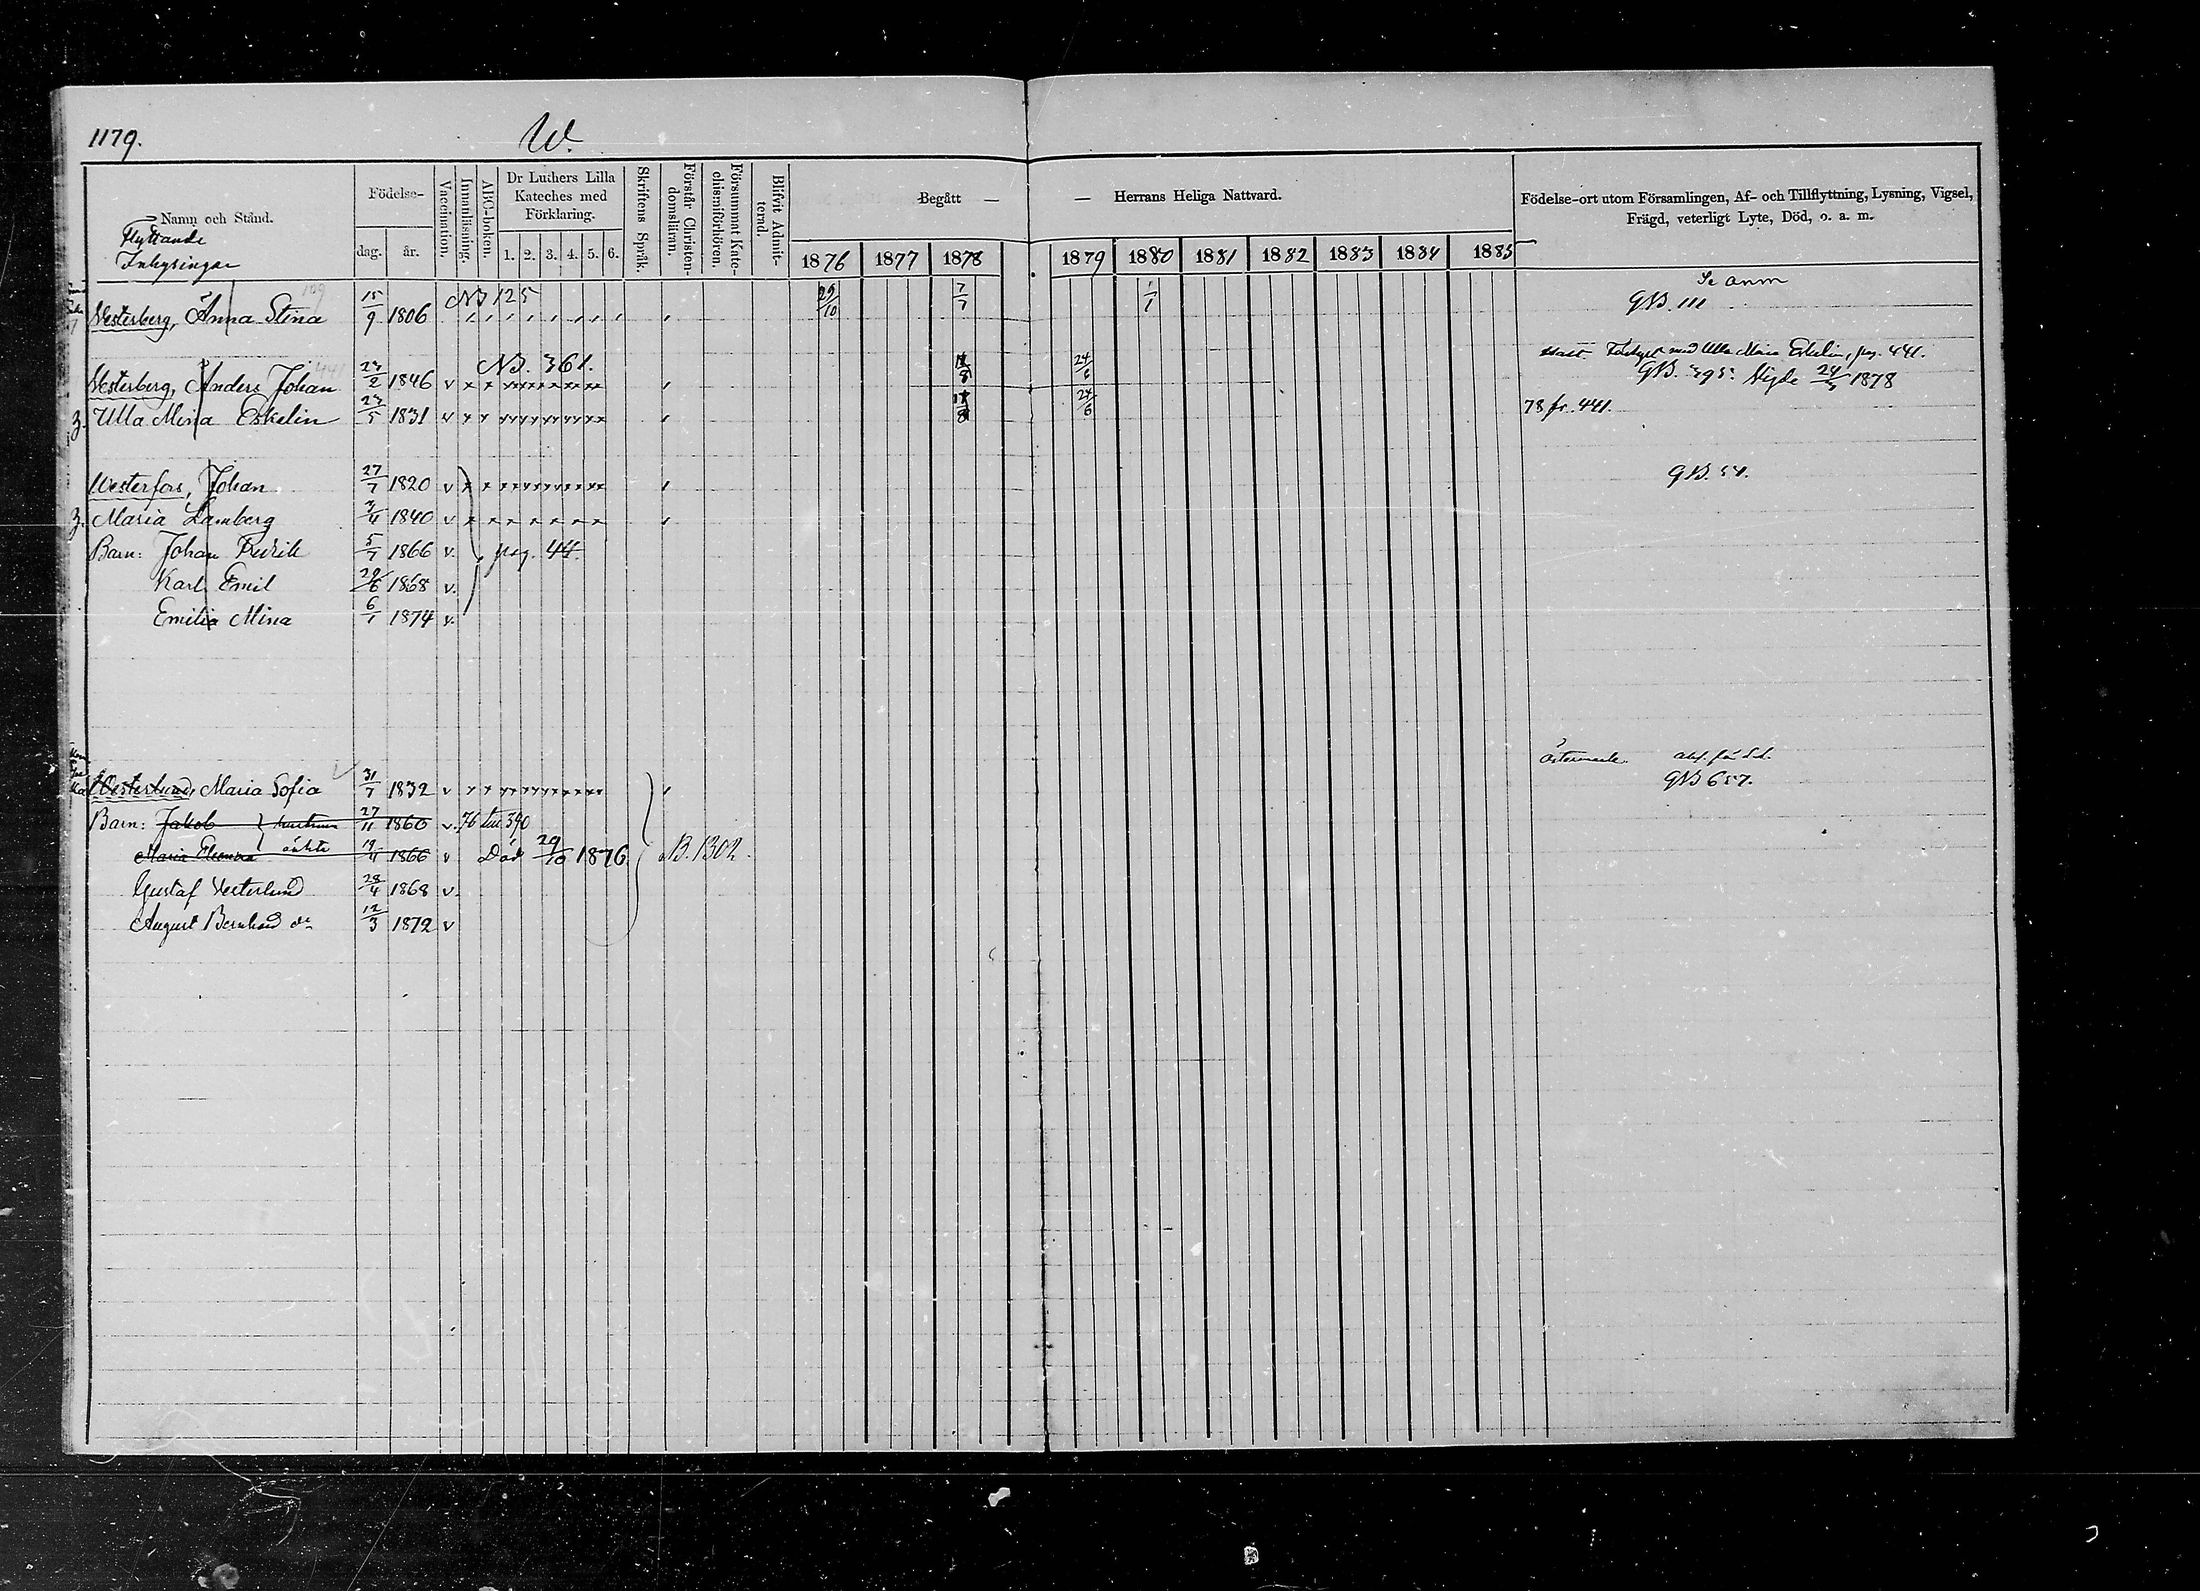 1179.
W.
Namn och Stånd.
Flyttande
Inhysingar
Födelse-
dag.
år.
Vaccination.
Innanläsning.
ABC-boken
Dr Luthers Lilla
Kateches med
Förklaring.
1. 2. 3. 4. 5. 6.
Skriftens Språk.
Förstår Christen-
domsläran.
Försummat Kate-
chismiförhören.
Blifvit Admit-
terad.
Begått —
— Herrans Heliga Nattvard.
1876 1877 1878 1879 1880 1881 1882 1883 1884 1885
Födelse-ort utom Församlingen, Af- och Tillflyttning, Lysning, Vigsel,
Frägd, veterligt Lyte, Död, o. a. m.
Se anm
Westerberg, Anna Stina 15/9 1806 NB 125 29/10 7/7 1/1 GB. 111
Westerberg, Anders Johan 23/2 1846 v NB. 361. 24/6 med Ulla Mina Eskelin, pag. 441.
GB. 395. Vigde 1878
3. Ulla Mina Eskelin 23/5 1831 v 24/6 78 fr. 441.
Westerfors, Johan 27/7 1820 v GB. 54.
3. Maria Lamberg 1840 v
Barn: Johan Fredrik 5/7 1866 v. pag. 44.
Karl Emil 29/6 1868 v.
Emilia Mina 6/1 1874 v.
Östermark
Westerlund, Maria Sofia 31/7 1832 v GB 657.
Barn: Jakob 27/11 1860 v. 76 till 390
Maria Eleonora oäkta 19/4 1866 v Död 29/10 1876. B. 1302.
Gustaf Vesterlund 28/4 1868 v.
August Bernhard d:o 12/3 1872 v